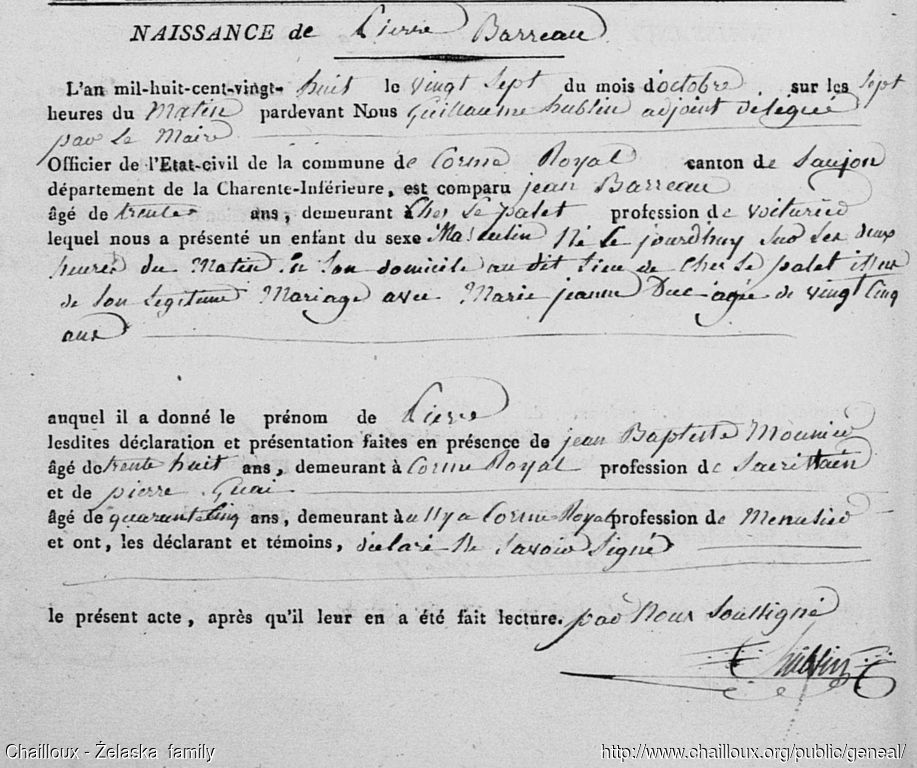 NAISSANCE de Pierre Barreau
L'an mil-huit-cent-vingt-huit le vingt sept du mois d'octobre, sur les sept
heures du Matin pardevant Nous Guillaume hublin adjoint delegué
par Le Maire
Officier de l'Etat-civil de la commune de Corme Royal canton de Saujon
département de la Charente-Inférieure, est comparu jean Barreau
âgé de trente ans, demeurant à Cher Le palet profession de voiturier
lequel nous a présenté un enfant du sexe Masculin Né Le jourdhuy sur Les deux
heures du Matin en Son domicile au dit Lieu de Cher Le palet issue
de Son Legitime Mariage avec Marie jeanne Duc agée de vingt Cinq
ans
auquel il a donné le prénom de Pierre
lesdites déclaration et présentation faites en présence de jean Baptiste Mounier
âgé de trente huit ans, demeurant à Corme Royal profession de Sacrittain
et de pierre Guai
âgé de quarante Cinq ans, demeurant à Corme Royal profession de Menusier
et ont, les déclarant et témoins, declaré Ne Savoir Signé
le présent acte, après qu'il leur en a été fait lecture. par Nous Soussigné
hublin
Chailloux - Želaska family
http://www.chailloux.org/public/geneal/